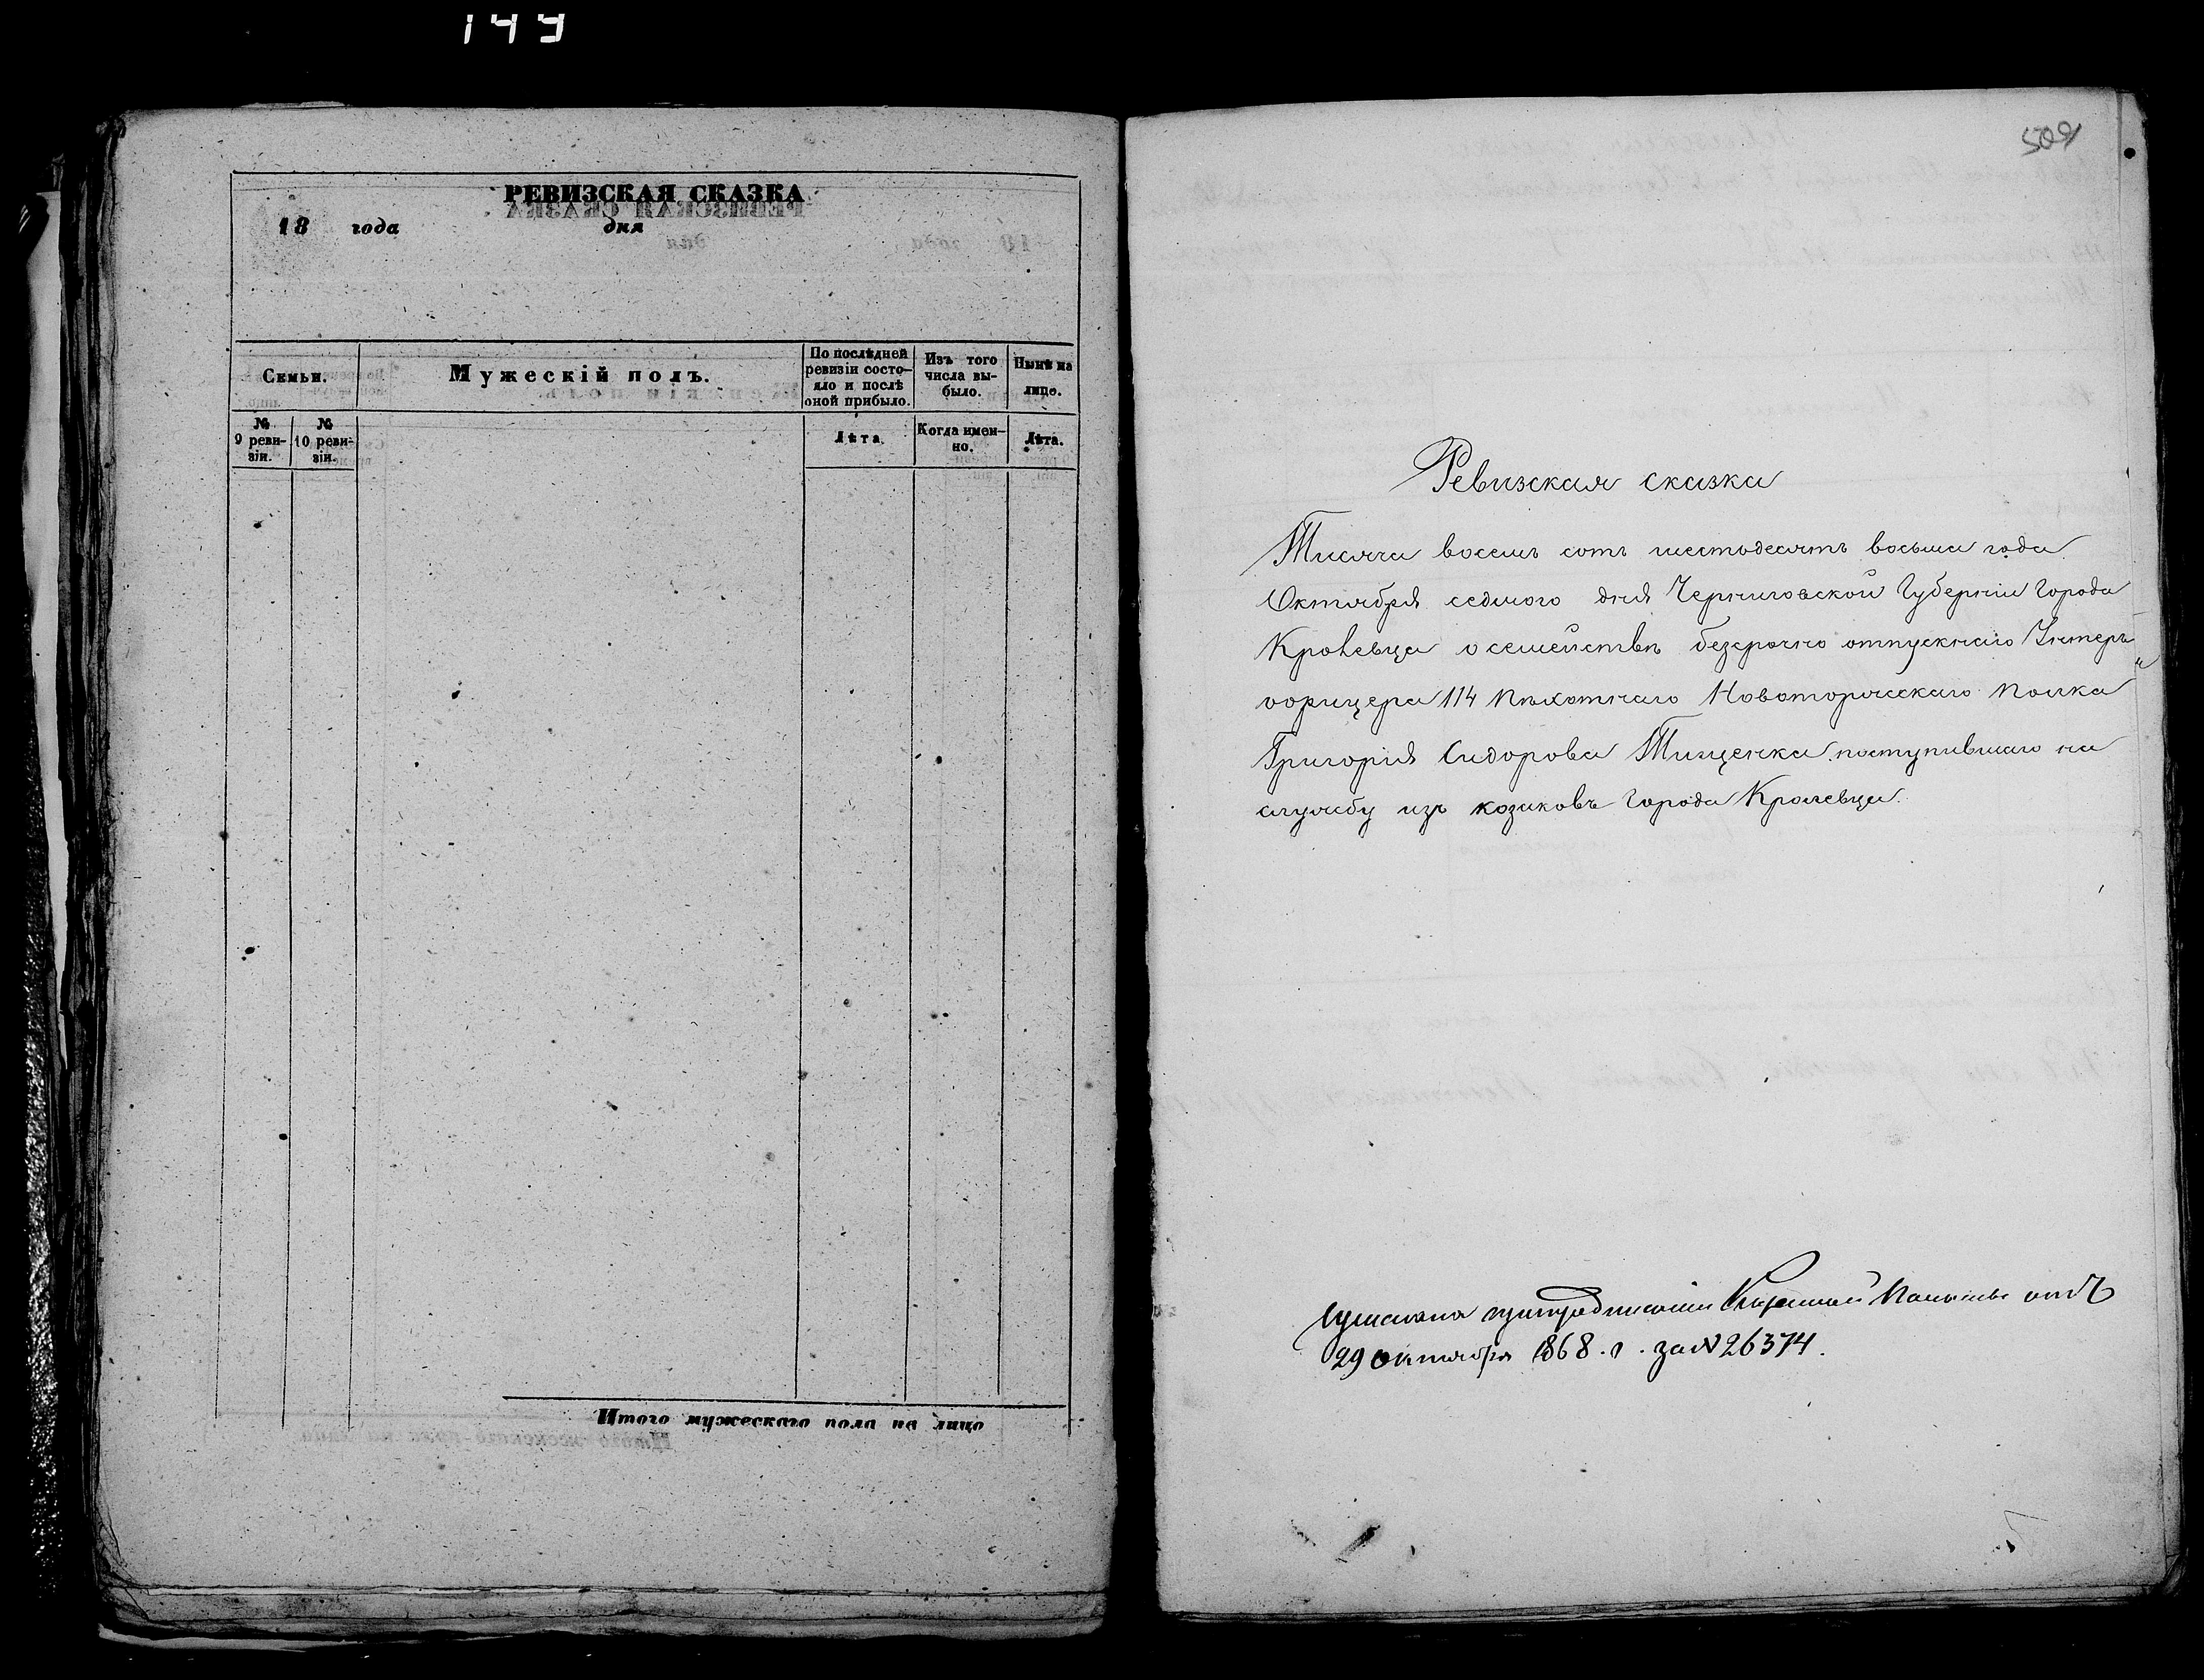 149
РЕВИЗСКАЯ СКАЗКА
18 года дня
Семьи.
Мужескій полъ.
По послѣдней ревизіи состо-яло и послѣ оной прибыло.
Изъ того числа вы-было.
Нынѣ на лицо.
№ 9 реви-зіи.
№ 10 реви-зіи.
Лѣта.
Когда имен-но.
Лѣта.
Итого мужескаго пола на лицо
509
Ревизская сказка
Тисяча восемь сотъ шестодесятъ восьма года
Октября седмого дня Черниговской Губерніи Города
Кролевца о семействѣ безсрочно отпускнаго Унтеръ
офицера 114 Пѣхотнаго Новоторжскаго полка
Григорія Сидорова Тищенка поступившаго на
службу изъ козаковъ Города Кролевца.
при предписаніи Казенной Палаты отъ
29 октября 1868. г. за № 26374.